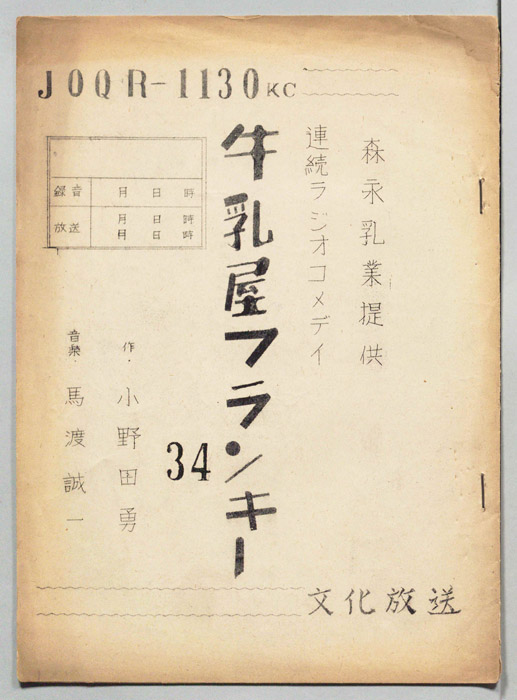 JOQR-1130KC
森永乳業提供
連続ラジオコメデイ
牛乳屋フランキー
34
録音 月 日 時
放送 月 日 時
月 日 時
作・小野田勇
音楽・馬渡誠一
文化放送